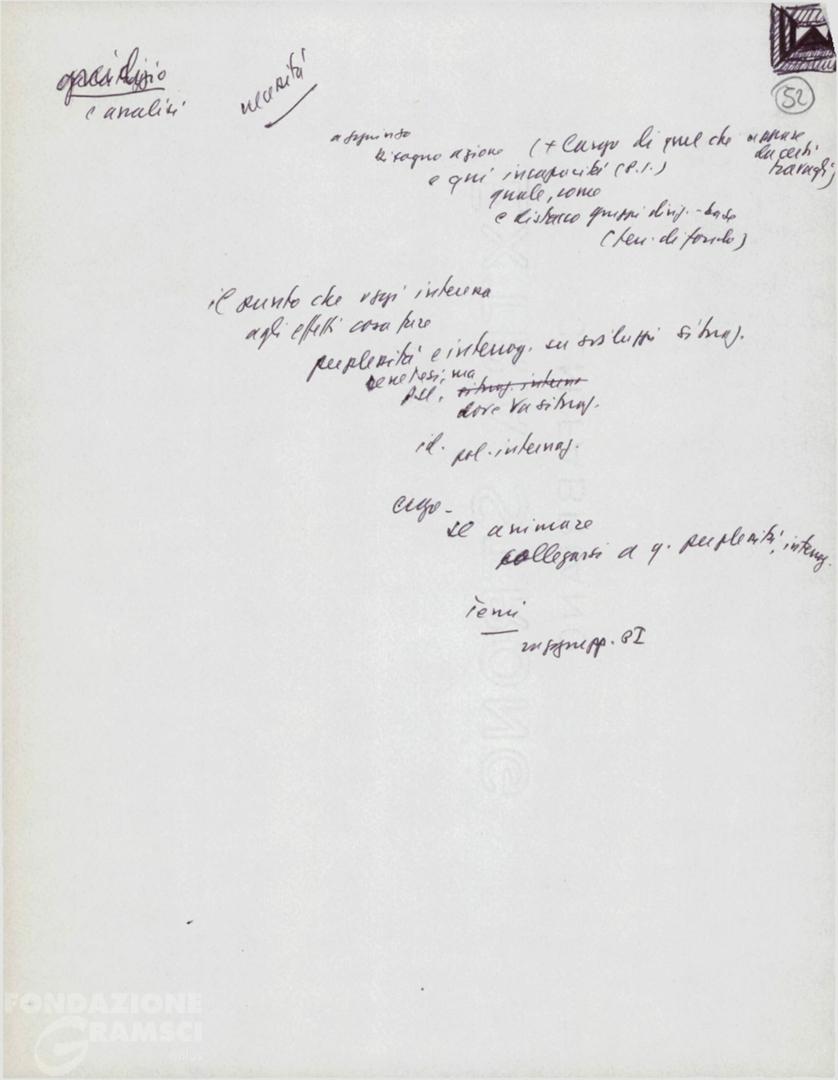 giudizio
e analisi
necessità
52
aggiunso
bisogno azione (+ largo di quel che appare
da certi
travagli)
e qui incapacità (P.I.)
quale, come
e distacco gruppi dirig.-base
(ten. di fondo)
il punto che oggi interessa
agli effetti cosa fare
perplessità e interrog. su sviluppi situaz.
situaz. interna
dove va situaz.
id. pol. internaz.
ergo -
se animare
collegarsi a q. perplessità, interrog.
Temi
FONDAZIONE
GRAMSCI
onlus